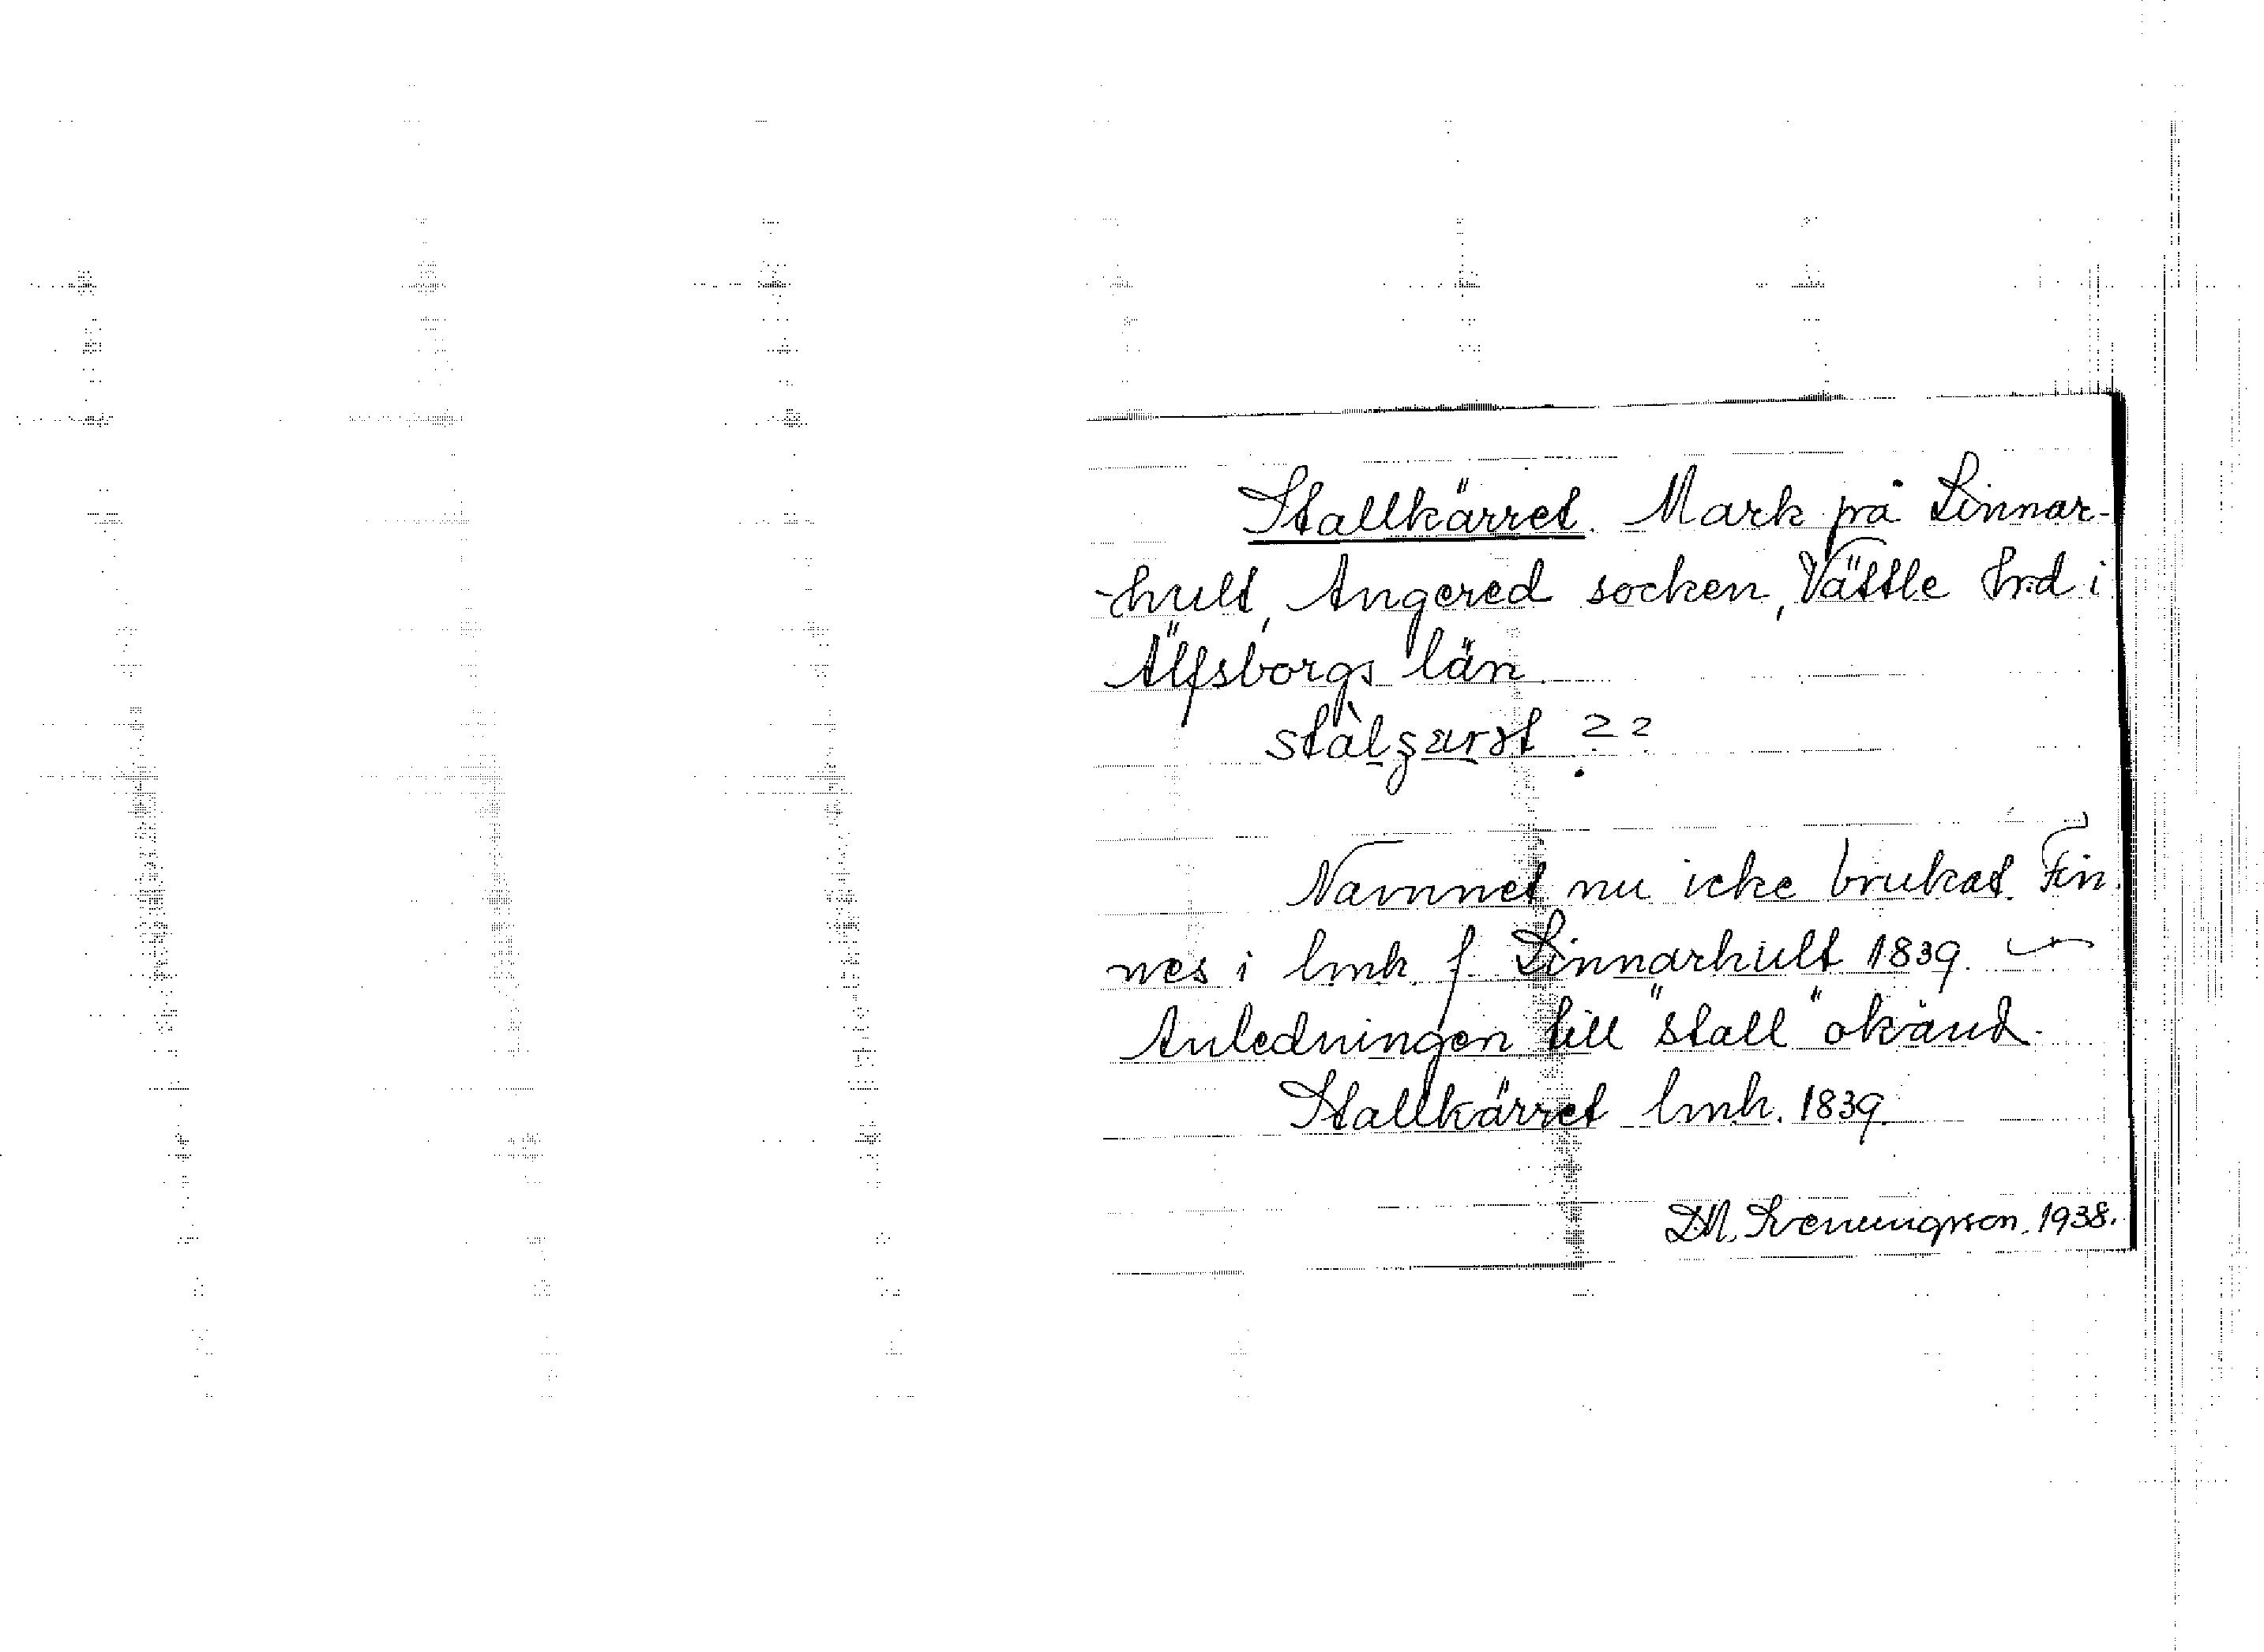 Stallkärret. Mark på Linnar-
-hult, Angered socken, Vättle hrd i
Älfsborgs län.
Namnet nu icke brukat. Fin.
nes i lmk. f Linnarhult 1839.
Anledningen till "stall" okänd.
Stallkärret lmk. 1839.
1938.